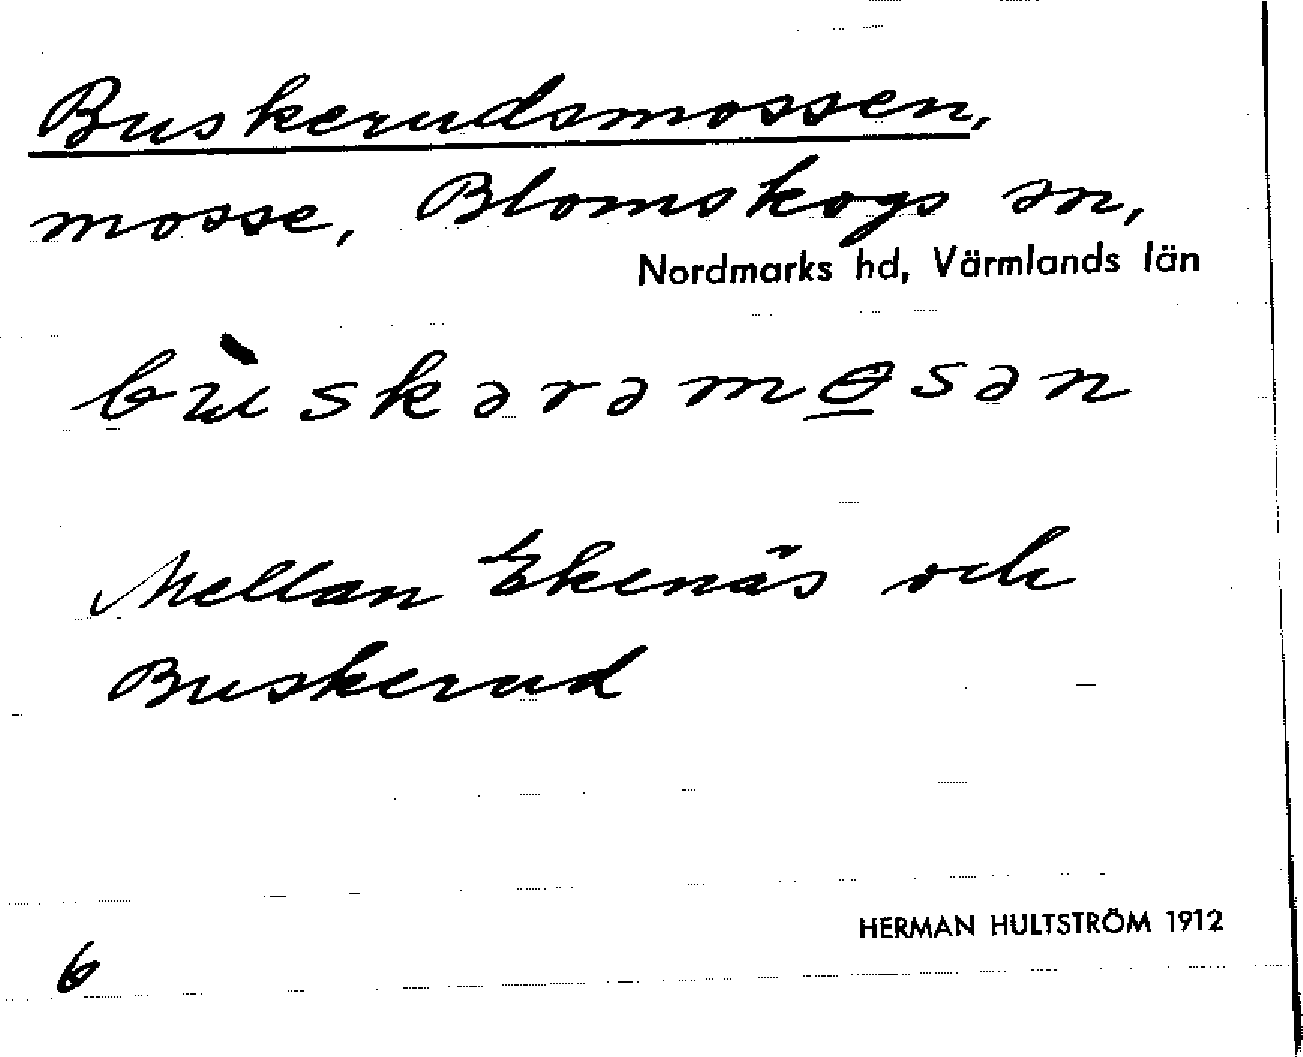 Buskerudsmossen,
mosse, Blomskogs sn,
Nordmarks hd, Värmlands län
bùskərəmɵ̲sən
Mellan Ekenäs och
Buskerud
HERMAN HULTSTRÖM 1912
6